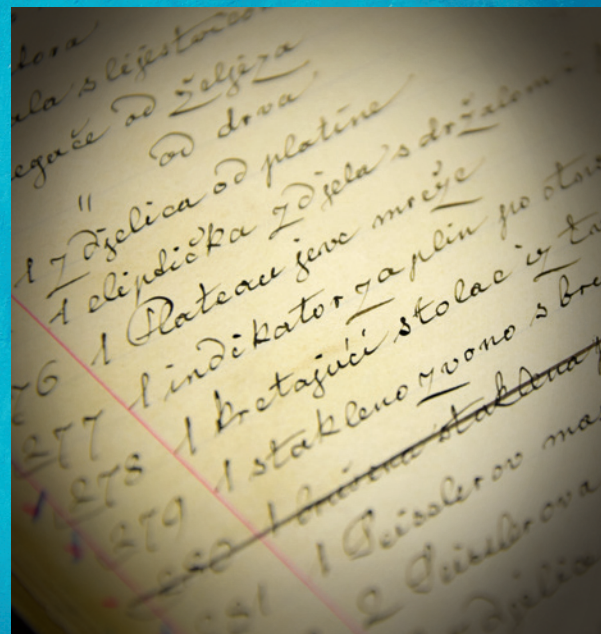 od željeza
" od drva
1 zdjelica od platine
1 eliptička zdjela s držalom i
76 1 Plateau jeve mreže
277 1 indikator za plin po
278 1 kretajući stolac iz
279 1 stakleno zvono s
280 1 staklena
281 1 Geisslerov
2 Geisslerova
zdjelica